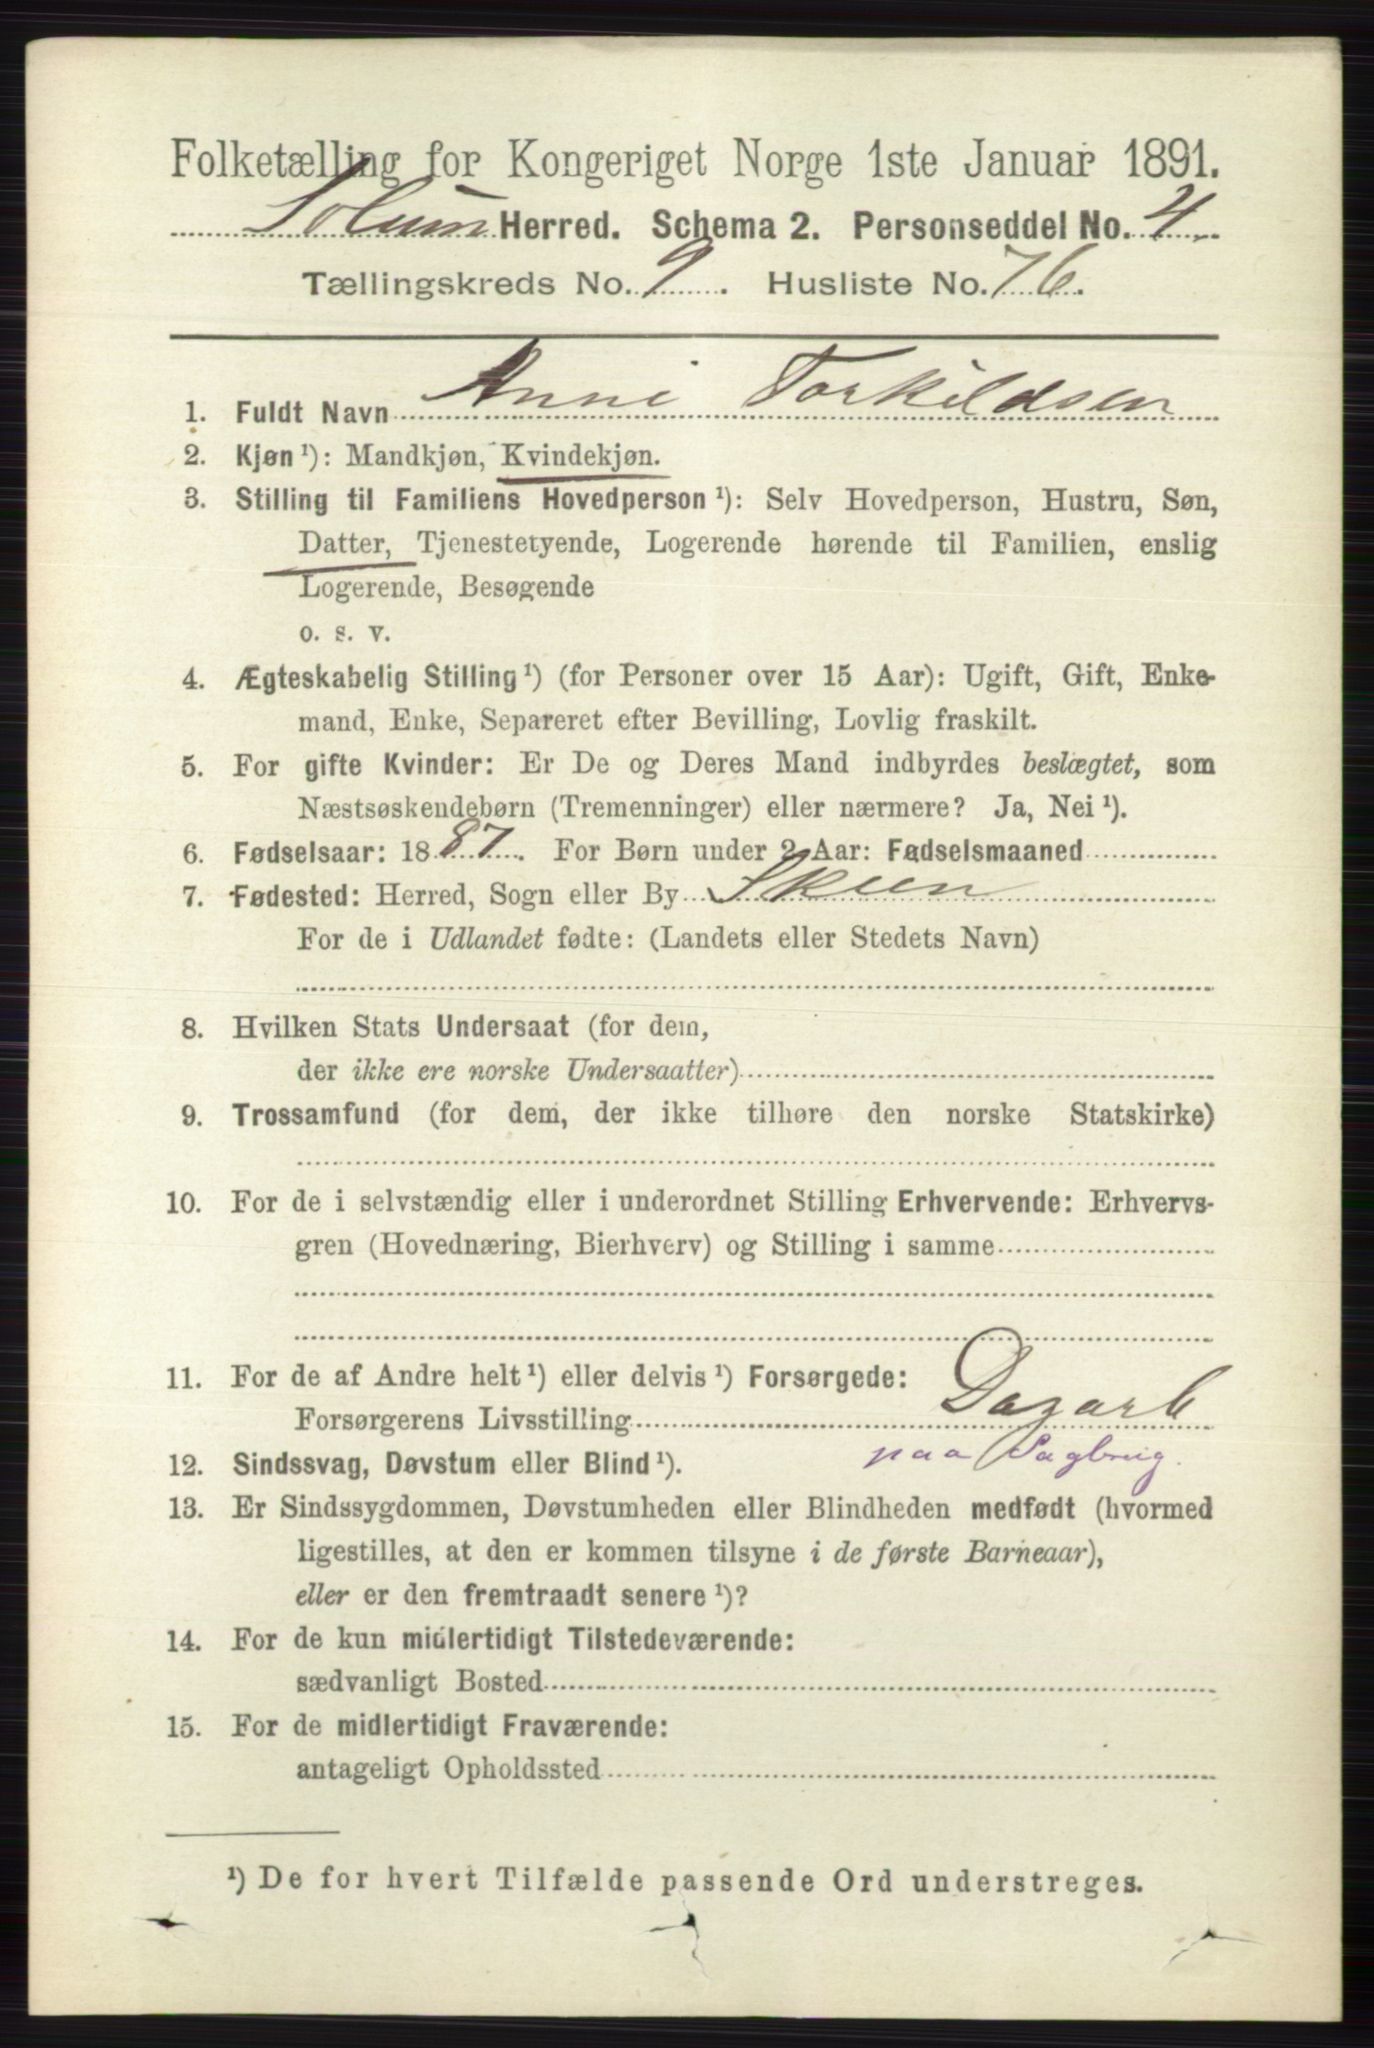 Folketælling for Kongeriget Norge 1ste Januar 1891.
Solum Herred. Schema 2. Personseddel No. 4
Tællingskreds No. 9. Husliste No. 76.
1. Fuldt Navn Anni Torkildsen
2. Kjøn ¹): Mandkjøn, Kvindekjøn.
3. Stilling til Familiens Hovedperson ¹): Selv Hovedperson, Hustru, Søn,
Datter, Tjenestetyende, Logerende hørende til Familien, enslig
Logerende, Besøgende
o. s. v.
4. Ægteskabelig Stilling ¹) (for Personer over 15 Aar): Ugift, Gift, Enke-
mand, Enke, Separeret efter Bevilling, Lovlig fraskilt.
5. For gifte Kvinder: Er De og Deres Mand indbyrdes beslægtet, som
Næstsøskendebørn (Tremenninger) eller nærmere? Ja, Nei ¹).
6. Fødselsaar: 1887. For Børn under 2 Aar: Fødselsmaaned
7. Fødested: Herred, Sogn eller By Skien
For de i Udlandet fødte: (Landets eller Stedets Navn)
8. Hvilken Stats Undersaat (for dem,
der ikke ere norske Undersaatter)
9. Trossamfund (for dem, der ikke tilhøre den norske Statskirke)
10. For de i selvstændig eller i underordnet Stilling Erhvervende: Erhvervs-
gren (Hovednæring, Bierhverv) og Stilling i samme
11. For de af Andre helt ¹) eller delvis ¹) Forsørgede:
Forsørgerens Livsstilling Dagarb
paa Sagbrug.
12. Sindssvag, Døvstum eller Blind ¹).
13. Er Sindssygdommen, Døvstumheden eller Blindheden medfødt (hvormed
ligestilles, at den er kommen tilsyne i de første Barneaar),
eller er den fremtraadt senere ¹)?
14. For de kun midlertidigt Tilstedeværende:
sædvanligt Bosted
15. For de midlertidigt Fraværende:
antageligt Opholdssted
¹) De for hvert Tilfælde passende Ord understreges.